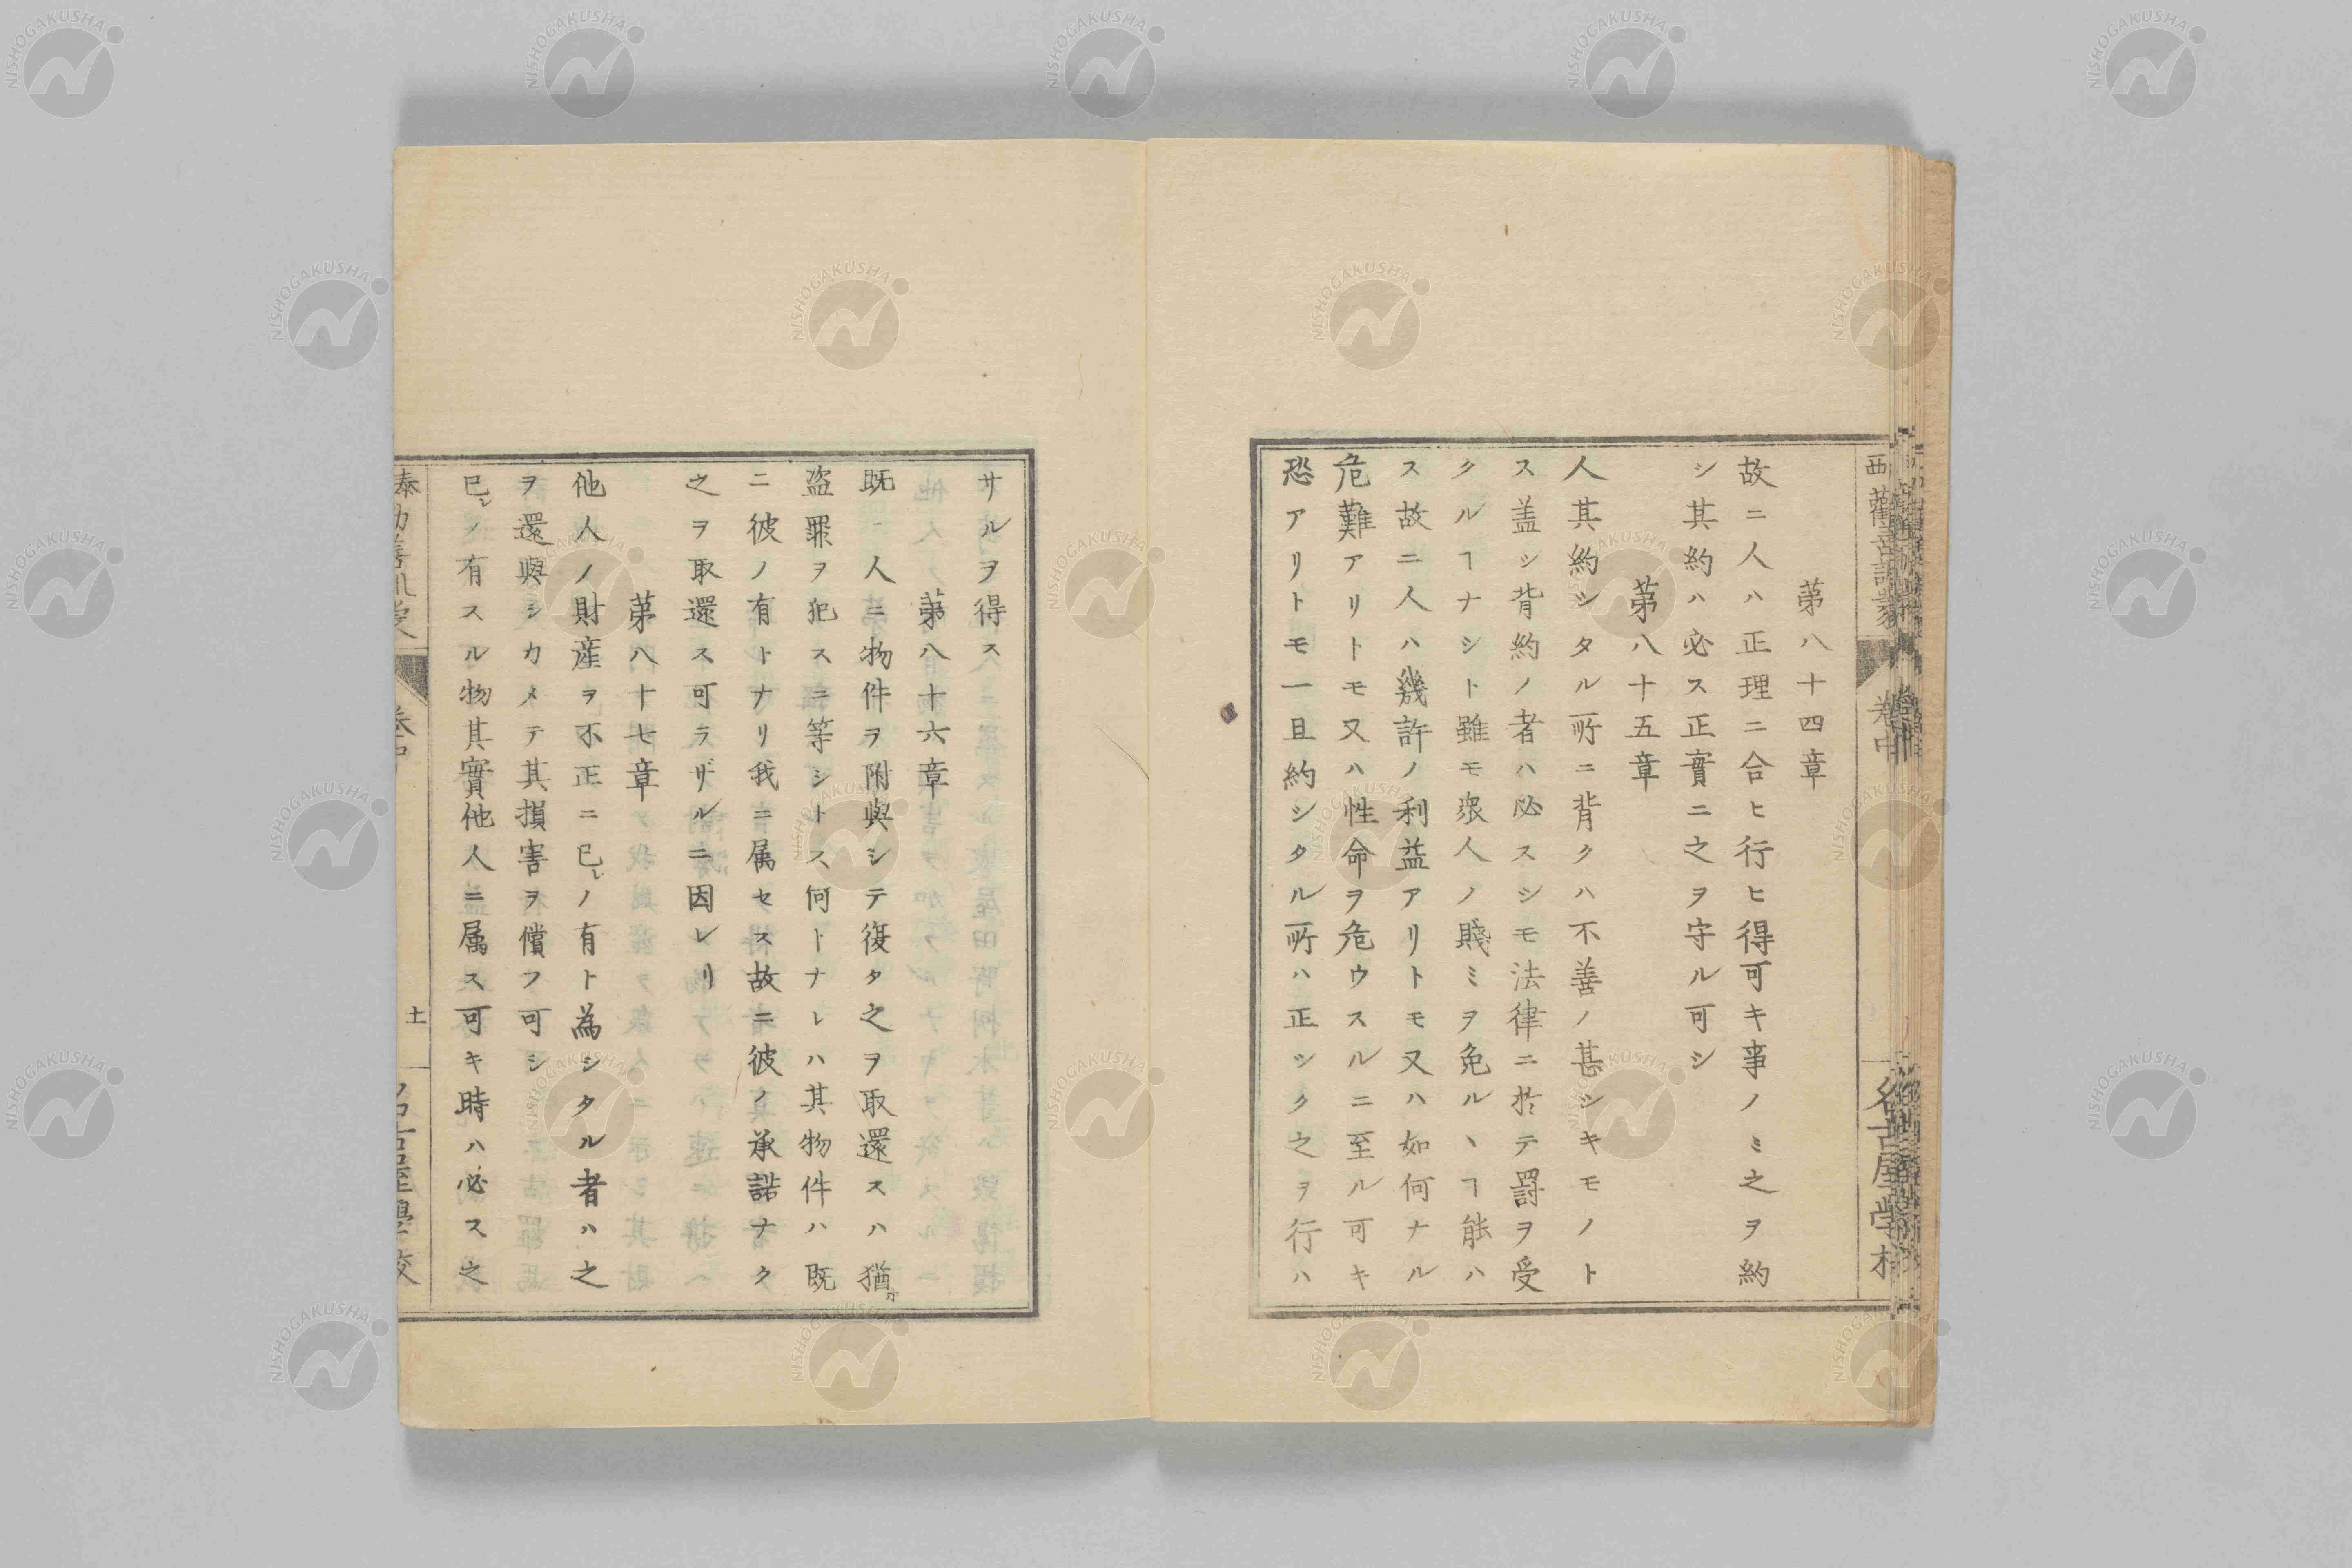 第八十四章
故ニ人ハ正理ニ合ヒ行ヒ得可キ事ノミ之ヲ約
シ其約ハ必ス正實ニ之ヲ守ル可シ
第八十五章
人其約シタル所ニ背クハ不善ノ甚シキモノト
ス盖シ背約ノ者ハ必スシモ法律ニ於テ罰ヲ受
クルヿナシト雖モ衆人ノ賤ミヲ免ルヽヿ能ハ
ス故ニ人ハ幾許ノ利益アリトモ又ハ如何ナル
危難アリトモ又ハ性命ヲ危ウスルニ至ル可キ
恐アリトモ一旦約シタル所ハ正シク之ヲ行ハ
サルヲ得ス
第八十六章
既ニ人ニ物件ヲ附與シテ復タ之ヲ取還スハ猶
盗罪ヲ犯スニ等シトス何トナレハ其物件ハ既
ニ彼ノ有トナリ我ニ属セス故ニ彼ノ承諾ナク
之ヲ取還ス可ラザルニ因レリ
第八十七章
他人ノ財産ヲ不正ニ已レノ有ト為シタル者ハ之
ヲ還與シカメテ其損害ヲ償フ可シ
已レノ有スル物其實他人ニ属ス可キ時ハ必ス之
卷中
土
NISHOGAKUSHA